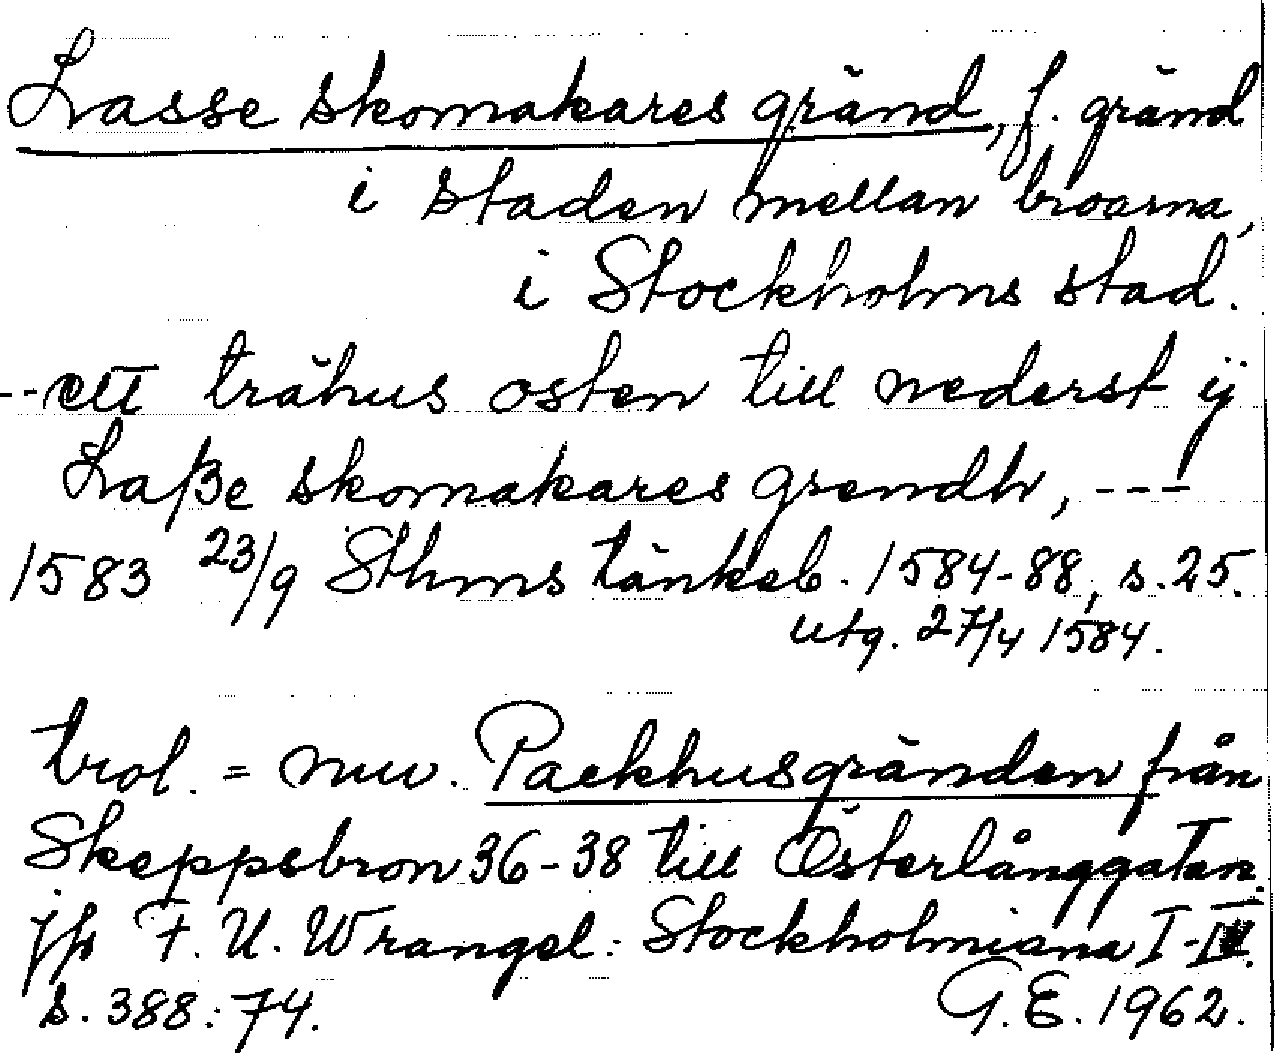 Lasse skomakares gränd, f. gränd
i staden mellan broarna,
i Stockholms stad.
--ett trähus osten till nederst ij
Laße skomakares grendh, ---
1583 23/9 Sthms tänkeb. 1584-88, s. 25.
utg. 27/4 1584.
trol. = nuv. Packhusgränden från
Skeppsbron 36-38 till Österlånggatan.
jfr F. U. Wrangel: Stockholmiana I-
s. 388:74.
G. E. 1962.